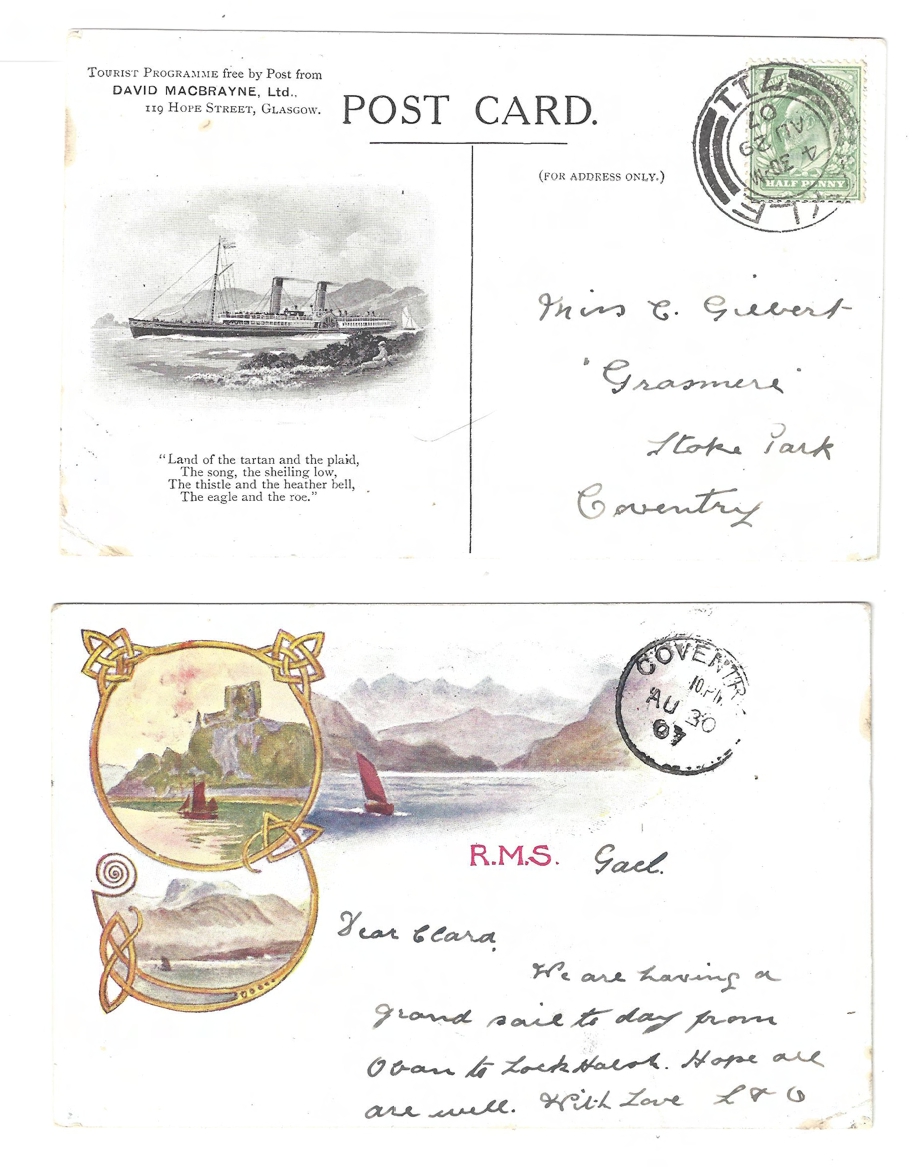 TOURIST PROGRAMME free by Post from
DAVID MACBRAYNE, Ltd.,
119 HOPE STREET, GLASGOW.
POST CARD.
(FOR ADDRESS ONLY.)
KYLE
4 30PM
AU 29
07
711
HALF PENNY
Miss C. Gilbert
"Grasmere"
Stoke Park
Coventry
"Land of the tartan and the plaid,
The song, the sheiling low,
The thistle and the heather bell,
The eagle and the roe."
COVENTRY
10.PM
AU 30
07
R.M.S. Gael.
Dear Clara,
We are having a
grand sail to day from
Oban to Loch Halsh. Hope all
are well. With Love L & O